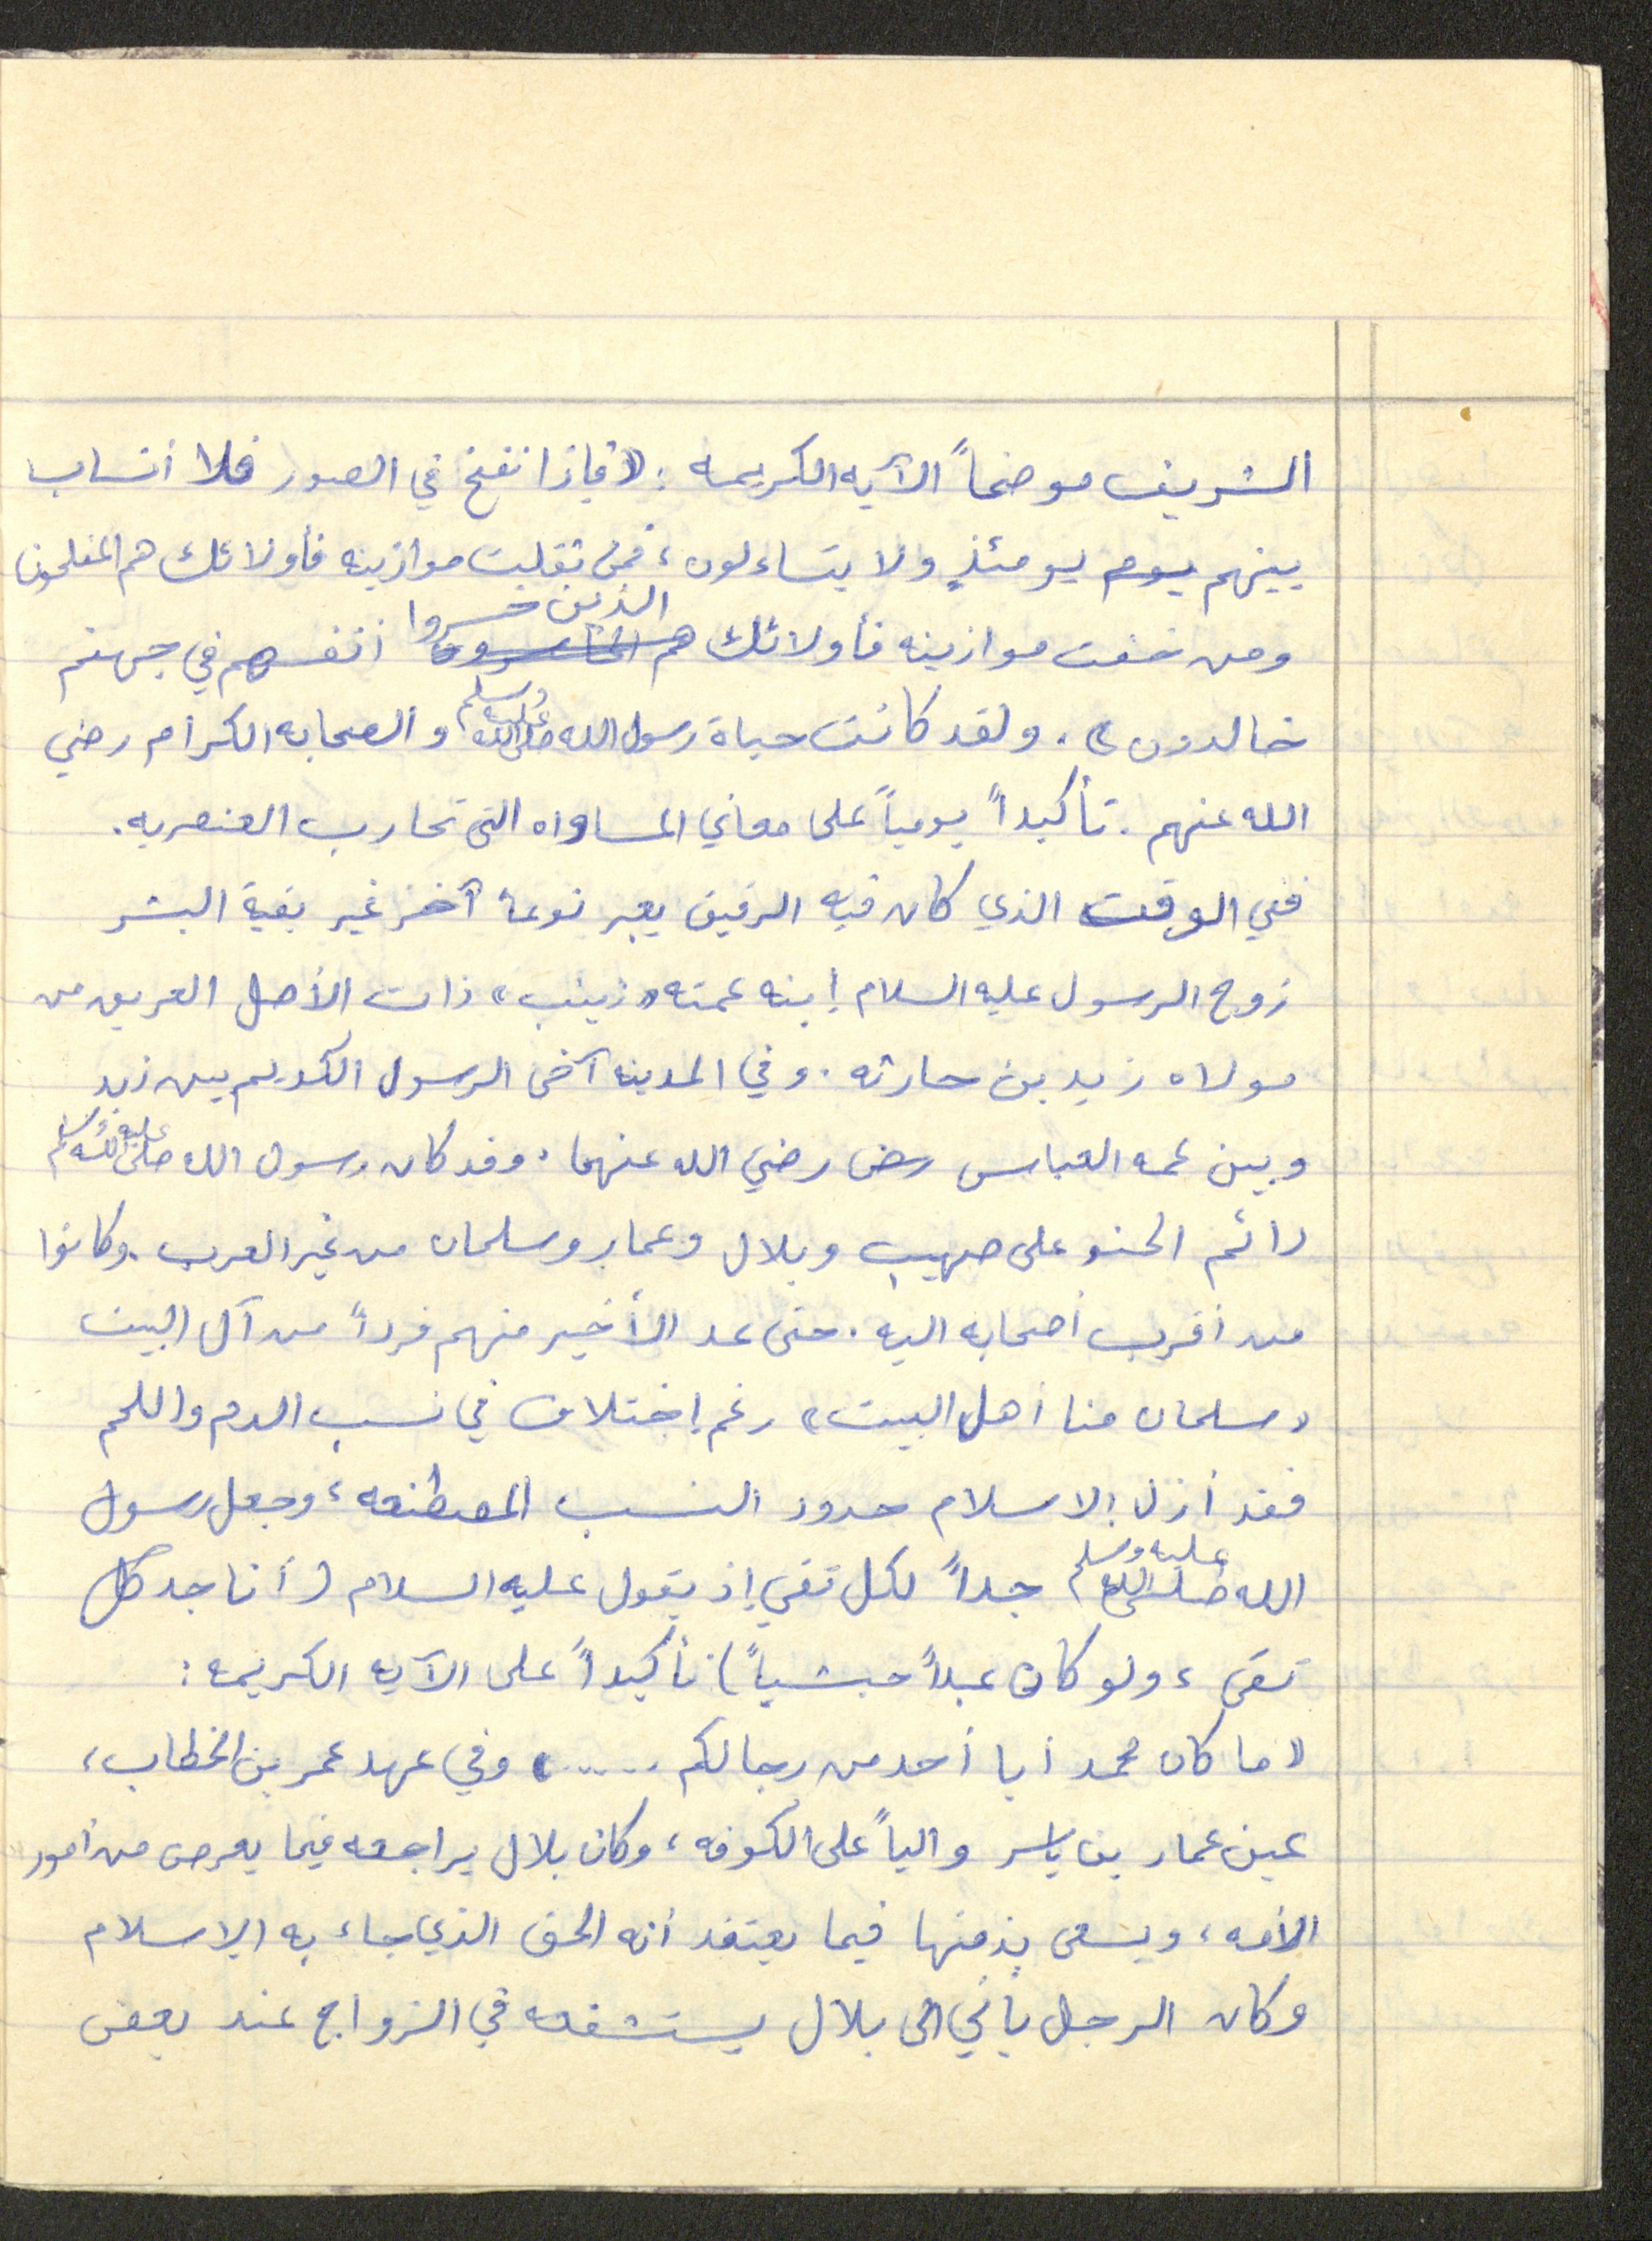 الشريف موضحاً الآيه الكريمه : « فإذا نفخ في الصور فلا أنساب
بينهم يوم يومئذٍ ولا يتساءلون ، فمن ثقلت موازينه فأولائك هم المفلحون
ومن خفت موازينه فأولائك هم الخاسرون الذين خسروا أنفسهم في جهنم
خالدون » . ولقد كانت حياة رسول الله صلى الله عليه وسلم والصحابه الكرام رضي
الله عنهم . تأكيداً يومياً على معاني المساواه التي تحارب العنصريه .
ففي الوقت الذي كان فيه الرقيق يعبر نوعاً آخر غير بقية البشر
زوج الرسول عليه السلام إبنه عمته « زينب » ذات الأصل العريق من
مولاه زيد بن حارثه . وفي المدينه آخى الرسول الكريم بين زيد
وبين عمه العباس رضى رضي الله عنهما . وقد كان رسول الله صلى الله عليه وسلم
دائم الحنو على صهيب وبلال وعمار وسلمان من غير العرب . وكانوا
من أقرب أصحابه اليه . حتى عد الأخير منهم فرداً من آل البيت
« سلمان منا أهل البيت » رغم إختلاف في نسب الدم واللحم
فقد أزل الاسلام حدود النسب المصطنعه ، وجعل رسول
الله صلى الله عليه وسلم جداً لكل تقي إذ يقول عليه السلام ( أنا جد كل
تقى ، ولو كان عبداً حبشياً ) تأكيداً على الآيه الكريمه :
« ما كان محمد أبا أحد من رجالكم ...... » وفي عهد عمر بن الخطاب ،
عين عمار بن ياسر والياً على الكوفه ، وكان بلال يراجعه فيما يعرض من أمور
الأمه ، ويسعى بذمتها فيما يعتقد أنه الحق الذي جاء به الإسلام
وكان الرجل يأتي الى بلال يستشفعه في الزواج عند بعض